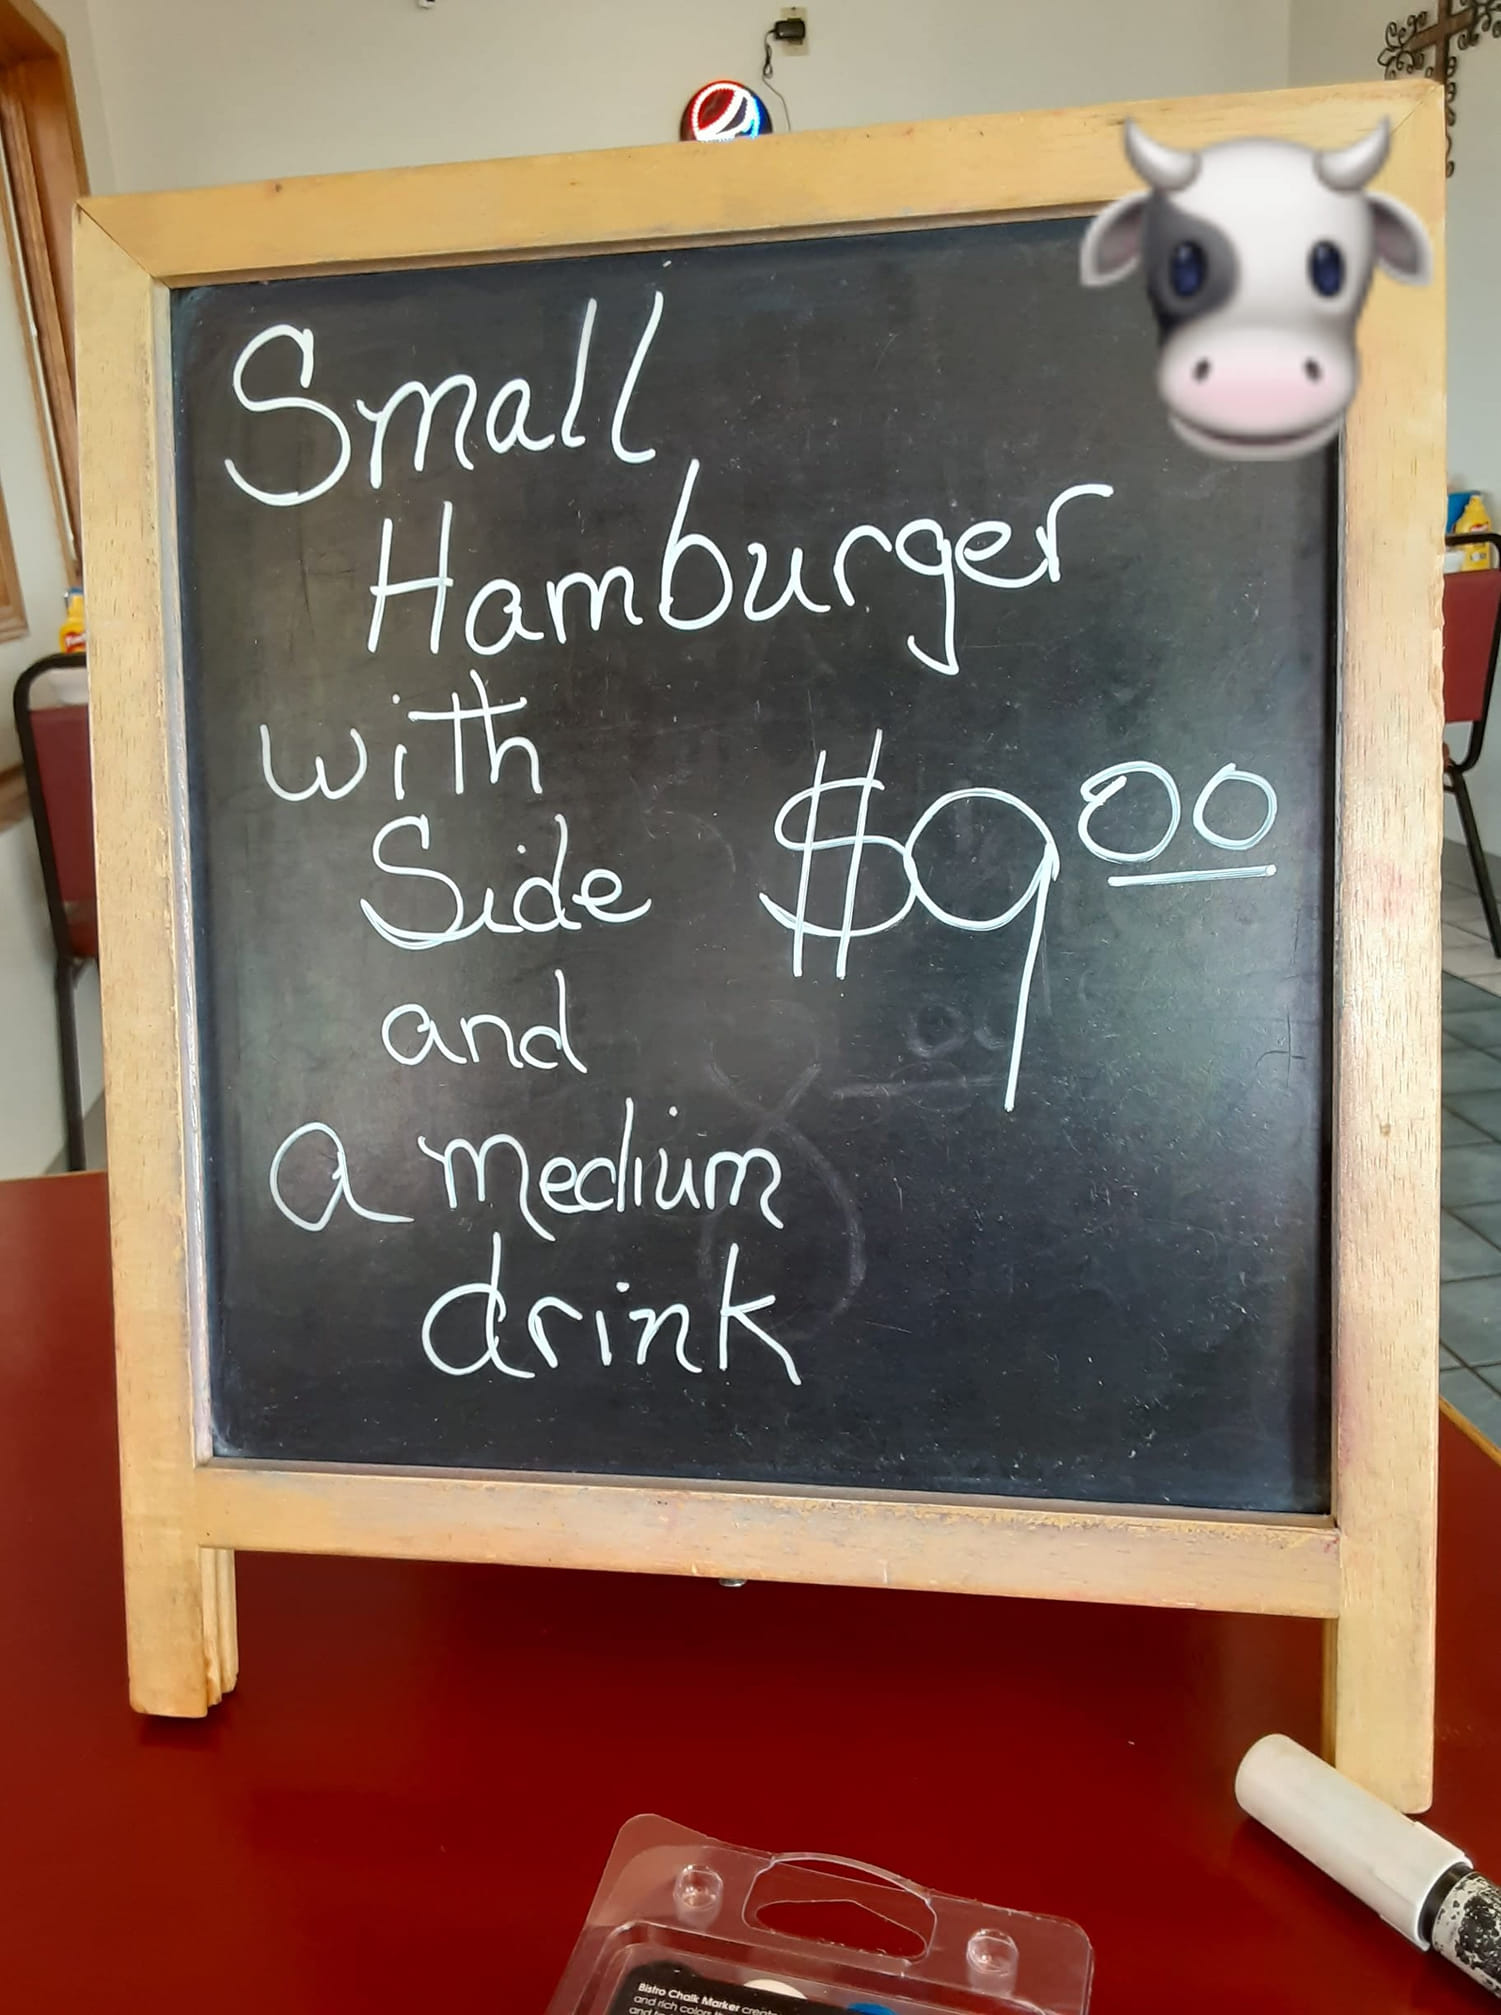 Small
Hamburger
with
Side
$9.00
and
a medium
drink
Bistro Chalk Marker
and rich colors